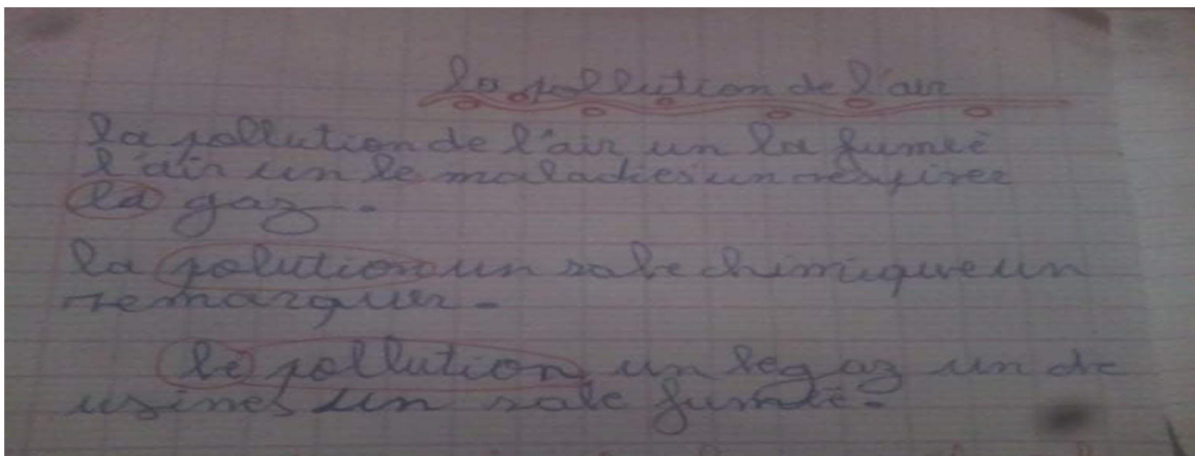 la pollution de l'air
la pollution de l'air un la fumeè
l'air un le maladies un respirer
la gaz.
la polution un sale chimique un
remarquer.
lè pollution un le gaz un de
usines un sale fumèe.